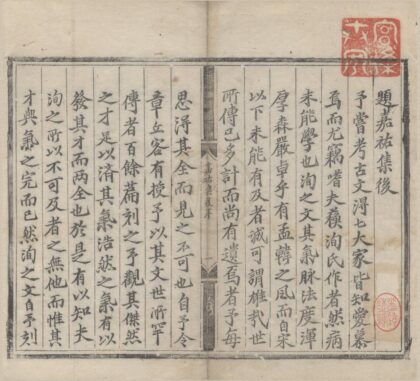 題嘉祐集後
予嘗考古文得七大家皆知愛慕
焉而尤竊嗜夫蘇洵氏作者然病
未能學也洵之文其氣脉法度渾
厚森嚴卓乎有孟轉之風而自宋
以下未能有及者誠可謂雄哉世
所傳已多計而尚有遺蓋者予每
思得其全而見之不可也自予令
章丘客有授予以其文世所罕
傳者百餘篇刻之予觀其傑然
之才足以濟其氣浩然之氣有以
發其才而兩全也於是有以知夫
洵之所以不可及者之無他而惟其
才與氣之完而已然洵之文自予刻